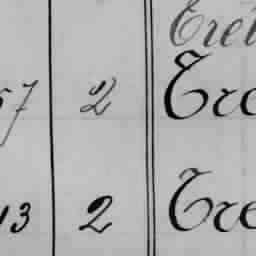 Eret
57 2 Tre
13 2 Tre